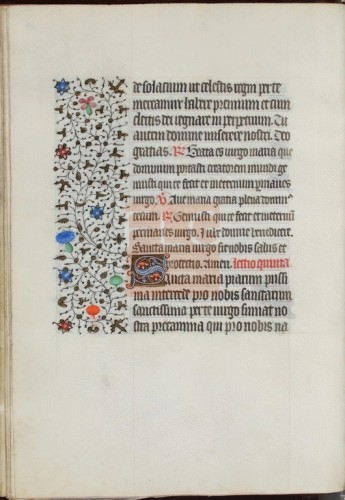 de solatium ut celestis regni per te
mereamur habere premium et cum
electis dei regnare in perpetuum. Tu
autem domine miserere nostri. Deo
gratias. R Beata es virgo maria que
dominum portasti creatorem mundi ge
nuisti qui te fecit et in eternum permanes
virgo. V Aue maria gratia plena domin
tecum. R Genuisti qui te fecit et in eternum
permanes virgo. Iube domne benedicere.
Sancta maria virgo sit nobis salus et
protectio. Amen. lectio quinta
Sancta maria piarum piissi
ma intercede pro nobis sanctarum
sanctissima per te virgo sumat no
stra precamina qui pro nobis na